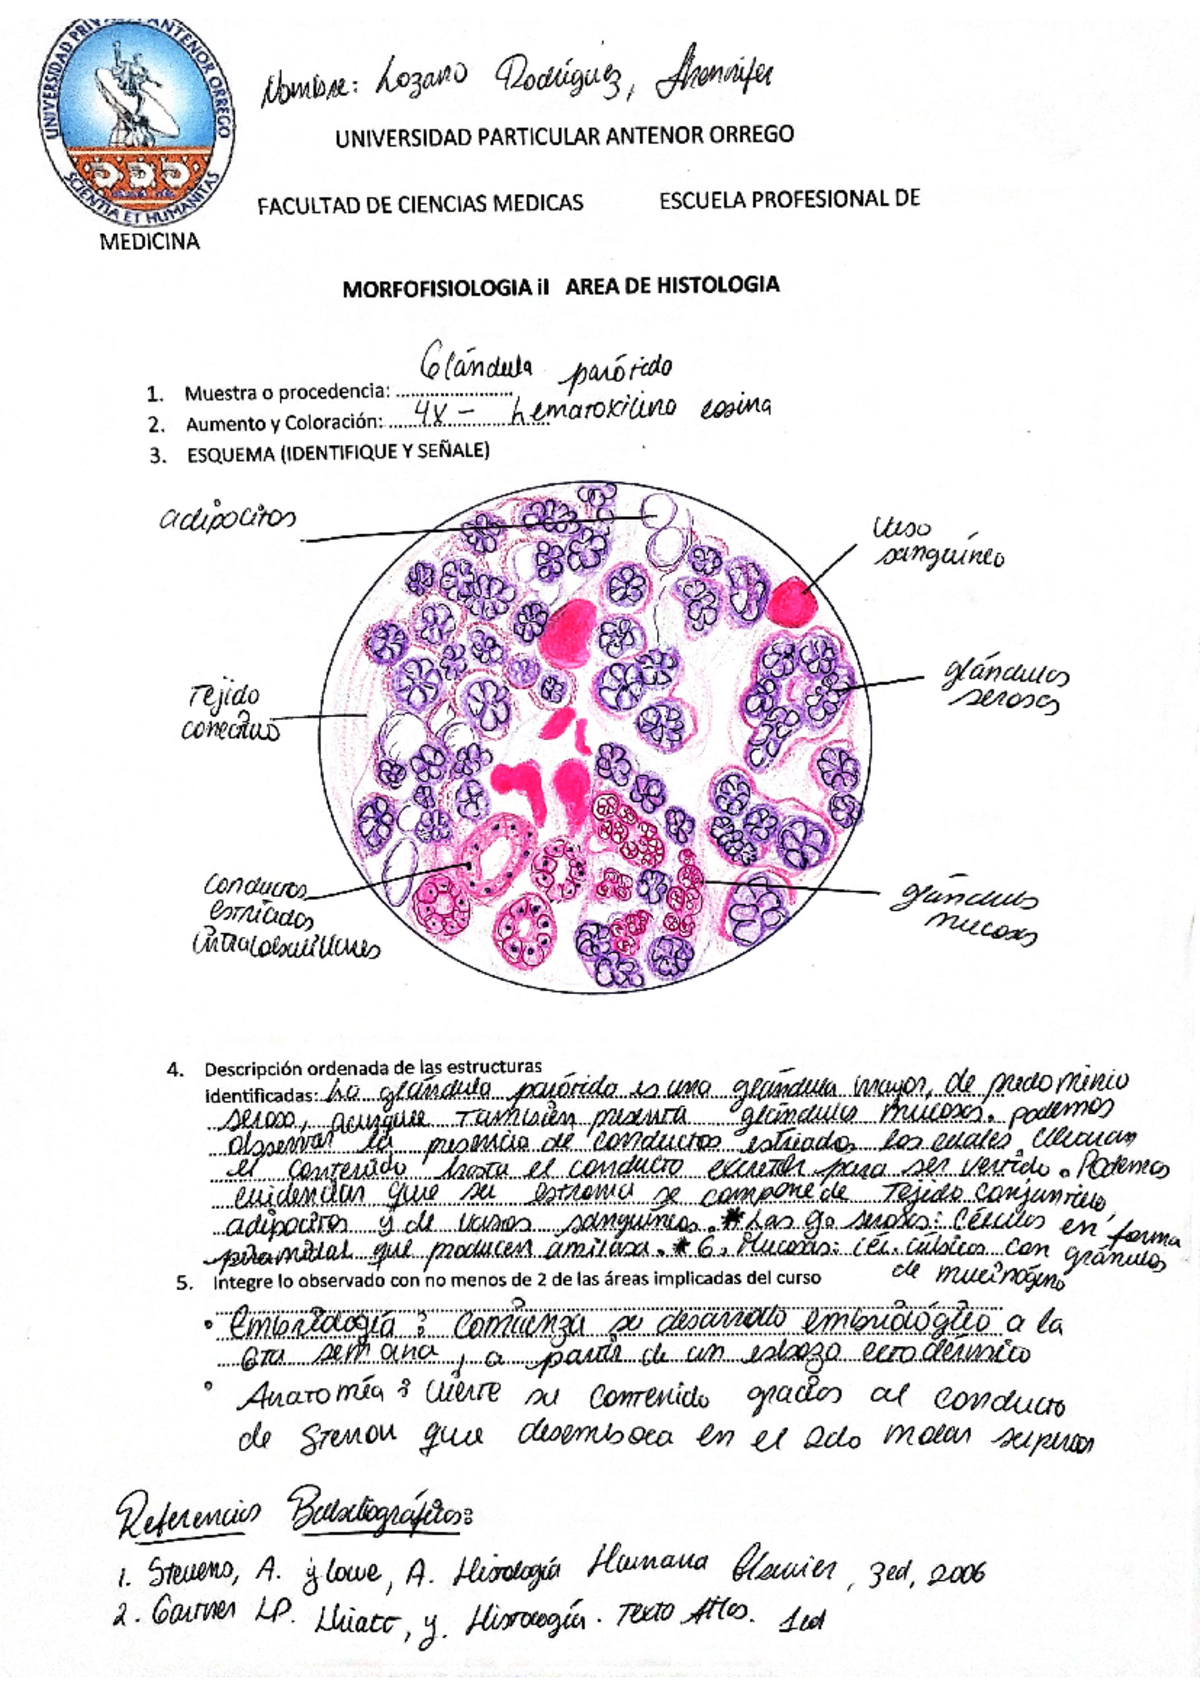 UNIVERSIDAD PRIVADA ANTENOR ORREGO
SCIENTIA ET HUMANITAS
Nombre: Lozano Rodríguez, Jhennifer
UNIVERSIDAD PARTICULAR ANTENOR ORREGO
FACULTAD DE CIENCIAS MEDICAS ESCUELA PROFESIONAL DE
MEDICINA
MORFOFISIOLOGIA iI AREA DE HISTOLOGIA
1. Muestra o procedencia: Glándula parótida
2. Aumento y Coloración: 4X - hematoxilina eosina
3. ESQUEMA (IDENTIFIQUE Y SEÑALE)
adipocitos
Vaso
sanguíneo
glándulas
serosas
Tejido
conectivo
Conductos
estriados
intralobulillares
glándulas
mucosas
4. Descripción ordenada de las estructuras
identificadas: La glándula parótida es una glándula mayor, de predominio
seroso, aunque también presenta glándulas mucosas. podemos
observar la presencia de conductos estriados los cuales llevan
el contenido hasta el conducto excretor para ser vertido. Podemos
evidenciar que su estroma se compone de Tejido conjuntivo,
adipocitos y de vasos sanguíneos. *Las g. serosas: Células en forma
piramidal que producen amilasa. * G. Mucosas: cél. cúbicas con gránulos
de mucinógeno
5. Integre lo observado con no menos de 2 de las áreas implicadas del curso
• Embriología: Comienza su desarrollo embriológico a la
6ta semana, a partir de un esbozo ectodérmico
• Anatomía: vierte su contenido gracias al conducto
de Stenon que desemboca en el 2do molar superior
Referencias Bibliográficas:
1. Stevens, A. y Lowe, A. Histología Humana Elsevier, 3ed, 2006
2. Gartner LP. Hiatt, y. Histología. Texto Atlas. 1ed